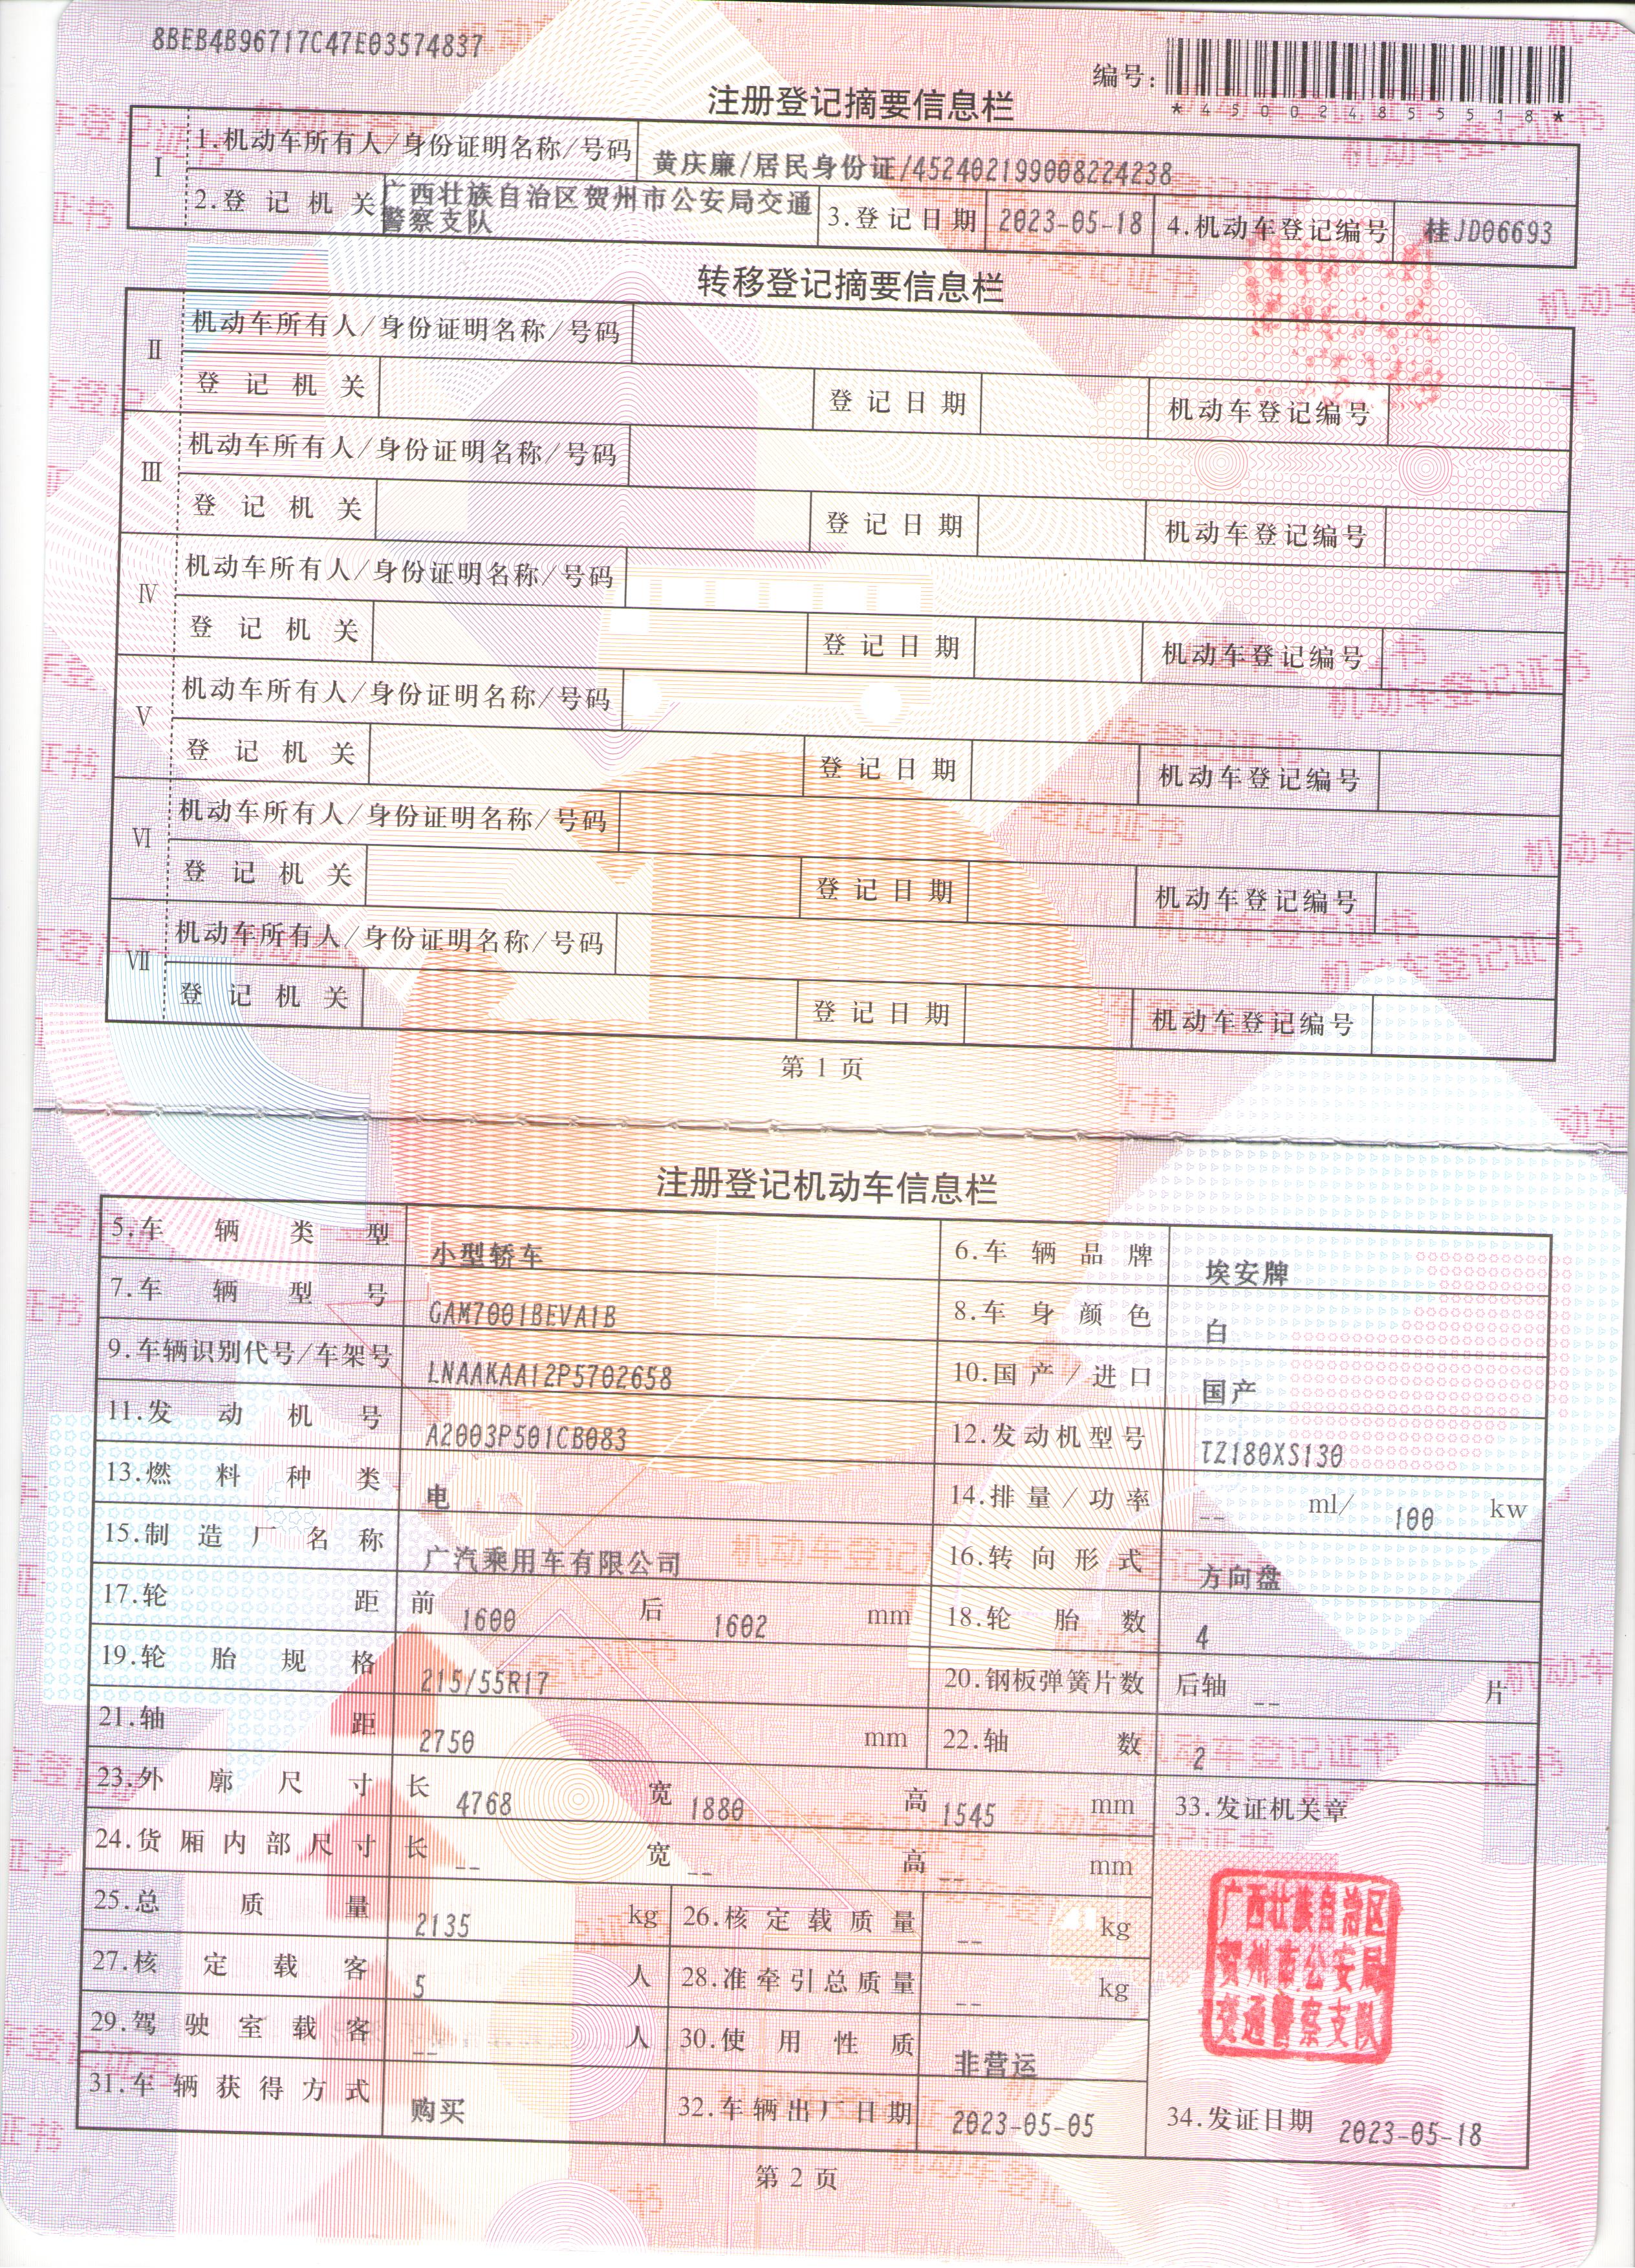 8BEB4B96717C47E03574837
编号:
*450024855518*
注册登记摘要信息栏
I 1.机动车所有人/身份证明名称/号码 黄庆廉/居民身份证/452402199008224238
2.登记机关 广西壮族自治区贺州市公安局交通警察支队 3.登记日期 2023-05-18 4.机动车登记编号 桂JD06693
转移登记摘要信息栏
II 机动车所有人/身份证明名称/号码
登记机关 登记日期 机动车登记编号
III 机动车所有人/身份证明名称/号码
登记机关 登记日期 机动车登记编号
IV 机动车所有人/身份证明名称/号码
登记机关 登记日期 机动车登记编号
V 机动车所有人/身份证明名称/号码
登记机关 登记日期 机动车登记编号
VI 机动车所有人/身份证明名称/号码
登记机关 登记日期 机动车登记编号
VII 机动车所有人/身份证明名称/号码
登记机关 登记日期 机动车登记编号
第 1 页
注册登记机动车信息栏
5.车辆类型 小型轿车 6.车辆品牌 埃安牌
7.车辆型号 GAM7001BEVA1B 8.车身颜色 白
9.车辆识别代号/车架号 LNAAKAA12P5702658 10.国产/进口 国产
11.发动机号 A2003P501CB083 12.发动机型号 TZ180XS130
13.燃料种类 电 14.排量/功率 -- ml/ 100 kw
15.制造厂名称 广汽乘用车有限公司 16.转向形式 方向盘
17.轮距 前 1600 后 1602 mm 18.轮胎数 4
19.轮胎规格 215/55R17 20.钢板弹簧片数 后轴 -- 片
21.轴距 2750 mm 22.轴数 2
23.外廓尺寸 长 4768 宽 1880 高 1545 mm 33.发证机关章
24.货厢内部尺寸 长 -- 宽 -- 高 -- mm
25.总质量 2135 kg 26.核定载质量 -- kg
27.核定载客 5 人 28.准牵引总质量 -- kg
29.驾驶室载客 -- 人 30.使用性质 非营运
31.车辆获得方式 购买 32.车辆出厂日期 2023-05-05 34.发证日期 2023-05-18
广西壮族自治区
贺州市公安局
交通警察支队
第 2 页